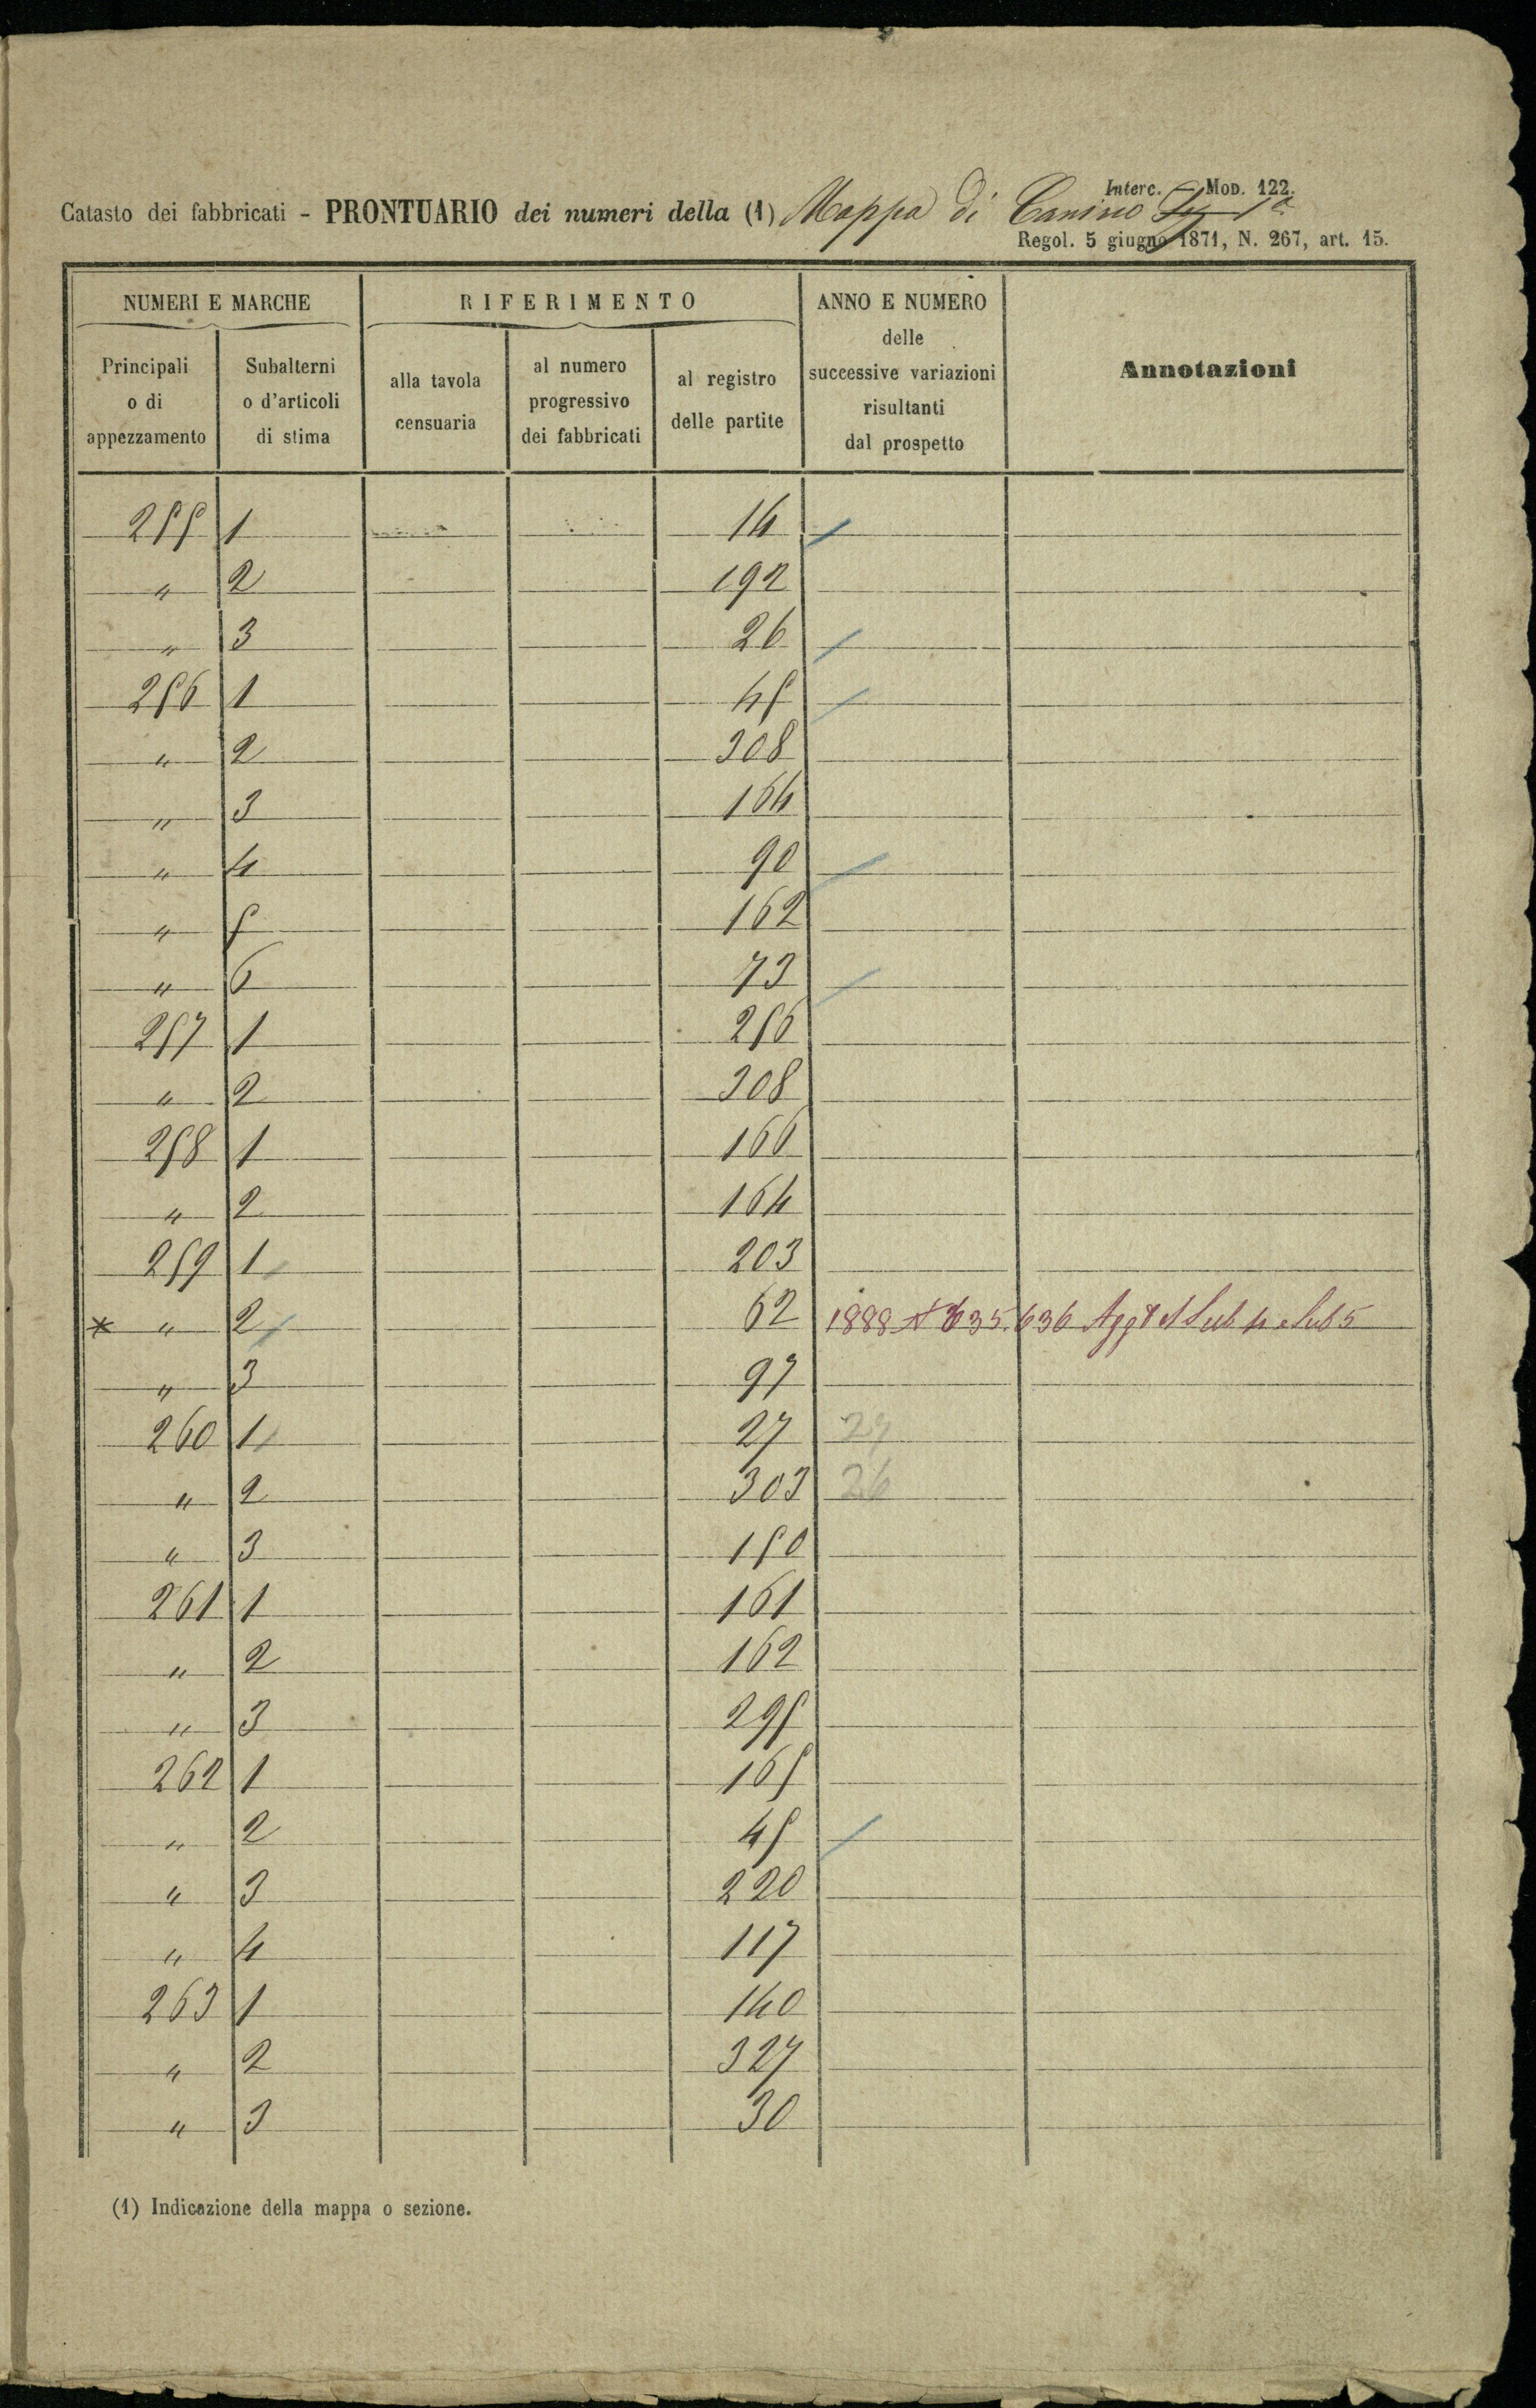 Interc. — Mod. 122.
Catasto dei fabbricati - PRONTUARIO dei numeri della (1) Mappa di Canino Sez 1ª
Regol. 5 giugno 1871, N. 267, art. 15.
NUMERI E MARCHE RIFERIMENTO ANNO E NUMERO delle successive variazioni risultanti dal prospetto Annotazioni
Principali o di appezzamento Subalterni o d'articoli di stima alla tavola censuaria al numero progressivo dei fabbricati al registro delle partite
255 1 14
" 2 192
" 3 26
256 1 45
" 2 308
" 3 164
" 4 90
" 5 162
" 6 73
257 1 256
" 2 308
258 1 166
" 2 164
259 1 203
* " 2 62 1888 N 635.636 Aggt el Sub 4 e Sub 5
" 3 97
260 1 27 27
" 2 303 26
" 3 150
261 1 161
" 2 162
" 3 295
262 1 165
" 2 45
" 3 220
" 4 117
263 1 140
" 2 327
" 3 30
(1) Indicazione della mappa o sezione.